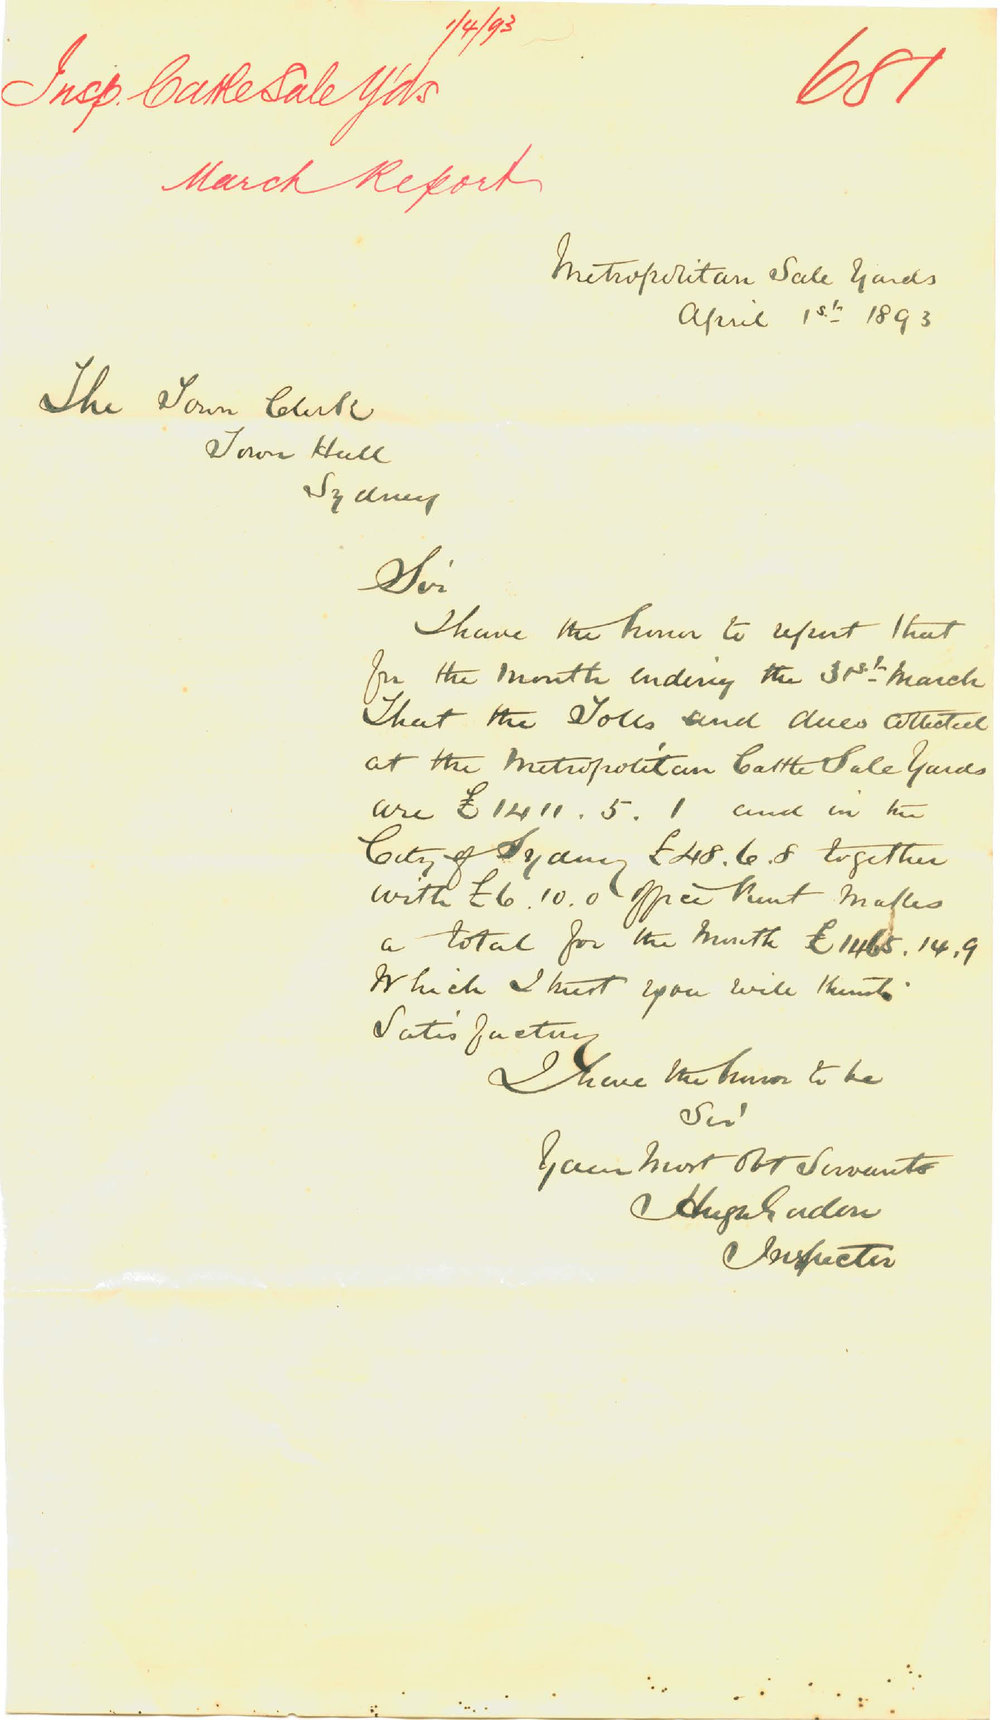 1/4/93
Insp. Cattle Sale Y'ds
681
March Report
Metropolitan Sale Yards
April 1st 1893
The Town Clerk
Town Hall
Sydney
Sir
I have the honor to report that
for the Month ending the 31st March
That the Tolls and dues Collected
at the Metropolitan Cattle Sale Yards
are £1411.5.1 and in the
City of Sydney £48.6.8 together
with £6.10.0 Office Rent Makes
a total for the Month £1465.14.9
Which I trust you will think
Satisfactory
I have the honor to be
Sir
Your Most Obt Servant
Hugh Gordon
Inspector